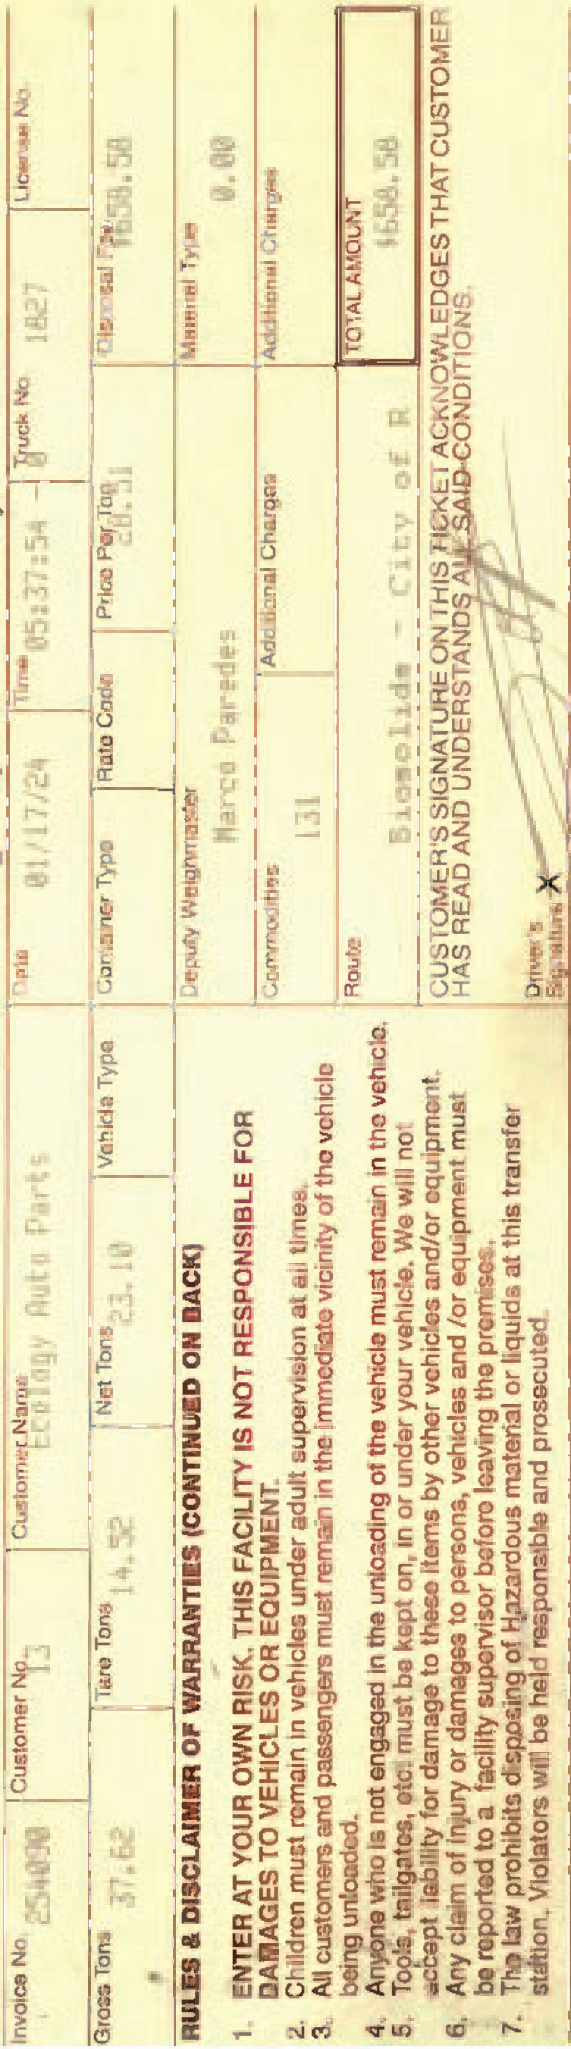 Invoice No. 254090 Customer No. 13 Customer Name Ecology Auto Parts Date 01/17/24 Time 05:37:54 - 0 Truck No. 1827 License No.
Gross Tons 37.62 Tare Tons 14.52 Net Tons 23.10 Vehicle Type Container Type Rate Code Price Per Ton 28.51 Disposal Fee $658.58
RULES & DISCLAIMER OF WARRANTIES (CONTINUED ON BACK)
1. ENTER AT YOUR OWN RISK. THIS FACILITY IS NOT RESPONSIBLE FOR
DAMAGES TO VEHICLES OR EQUIPMENT.
2. Children must remain in vehicles under adult supervision at all times.
3. All customers and passengers must remain in the immediate vicinity of the vehicle
being unloaded.
4. Anyone who is not engaged in the unloading of the vehicle must remain in the vehicle.
5. Tools, tailgates, etc. must be kept on, in or under your vehicle. We will not
accept liability for damage to these items by other vehicles and/or equipment.
6. Any claim of injury or damages to persons, vehicles and /or equipment must
be reported to a facility supervisor before leaving the premises.
7. The law prohibits disposing of Hazardous material or liquids at this transfer
station. Violators will be held responsible and prosecuted.
Deputy Weighmaster Marco Paredes Material Type 0.00
Commodities 131 Additional Charges Additional Charges
Route Biosolids - City of R TOTAL AMOUNT $658.58
CUSTOMER'S SIGNATURE ON THIS TICKET ACKNOWLEDGES THAT CUSTOMER
HAS READ AND UNDERSTANDS ALL SAID CONDITIONS.
Driver's
Signature X